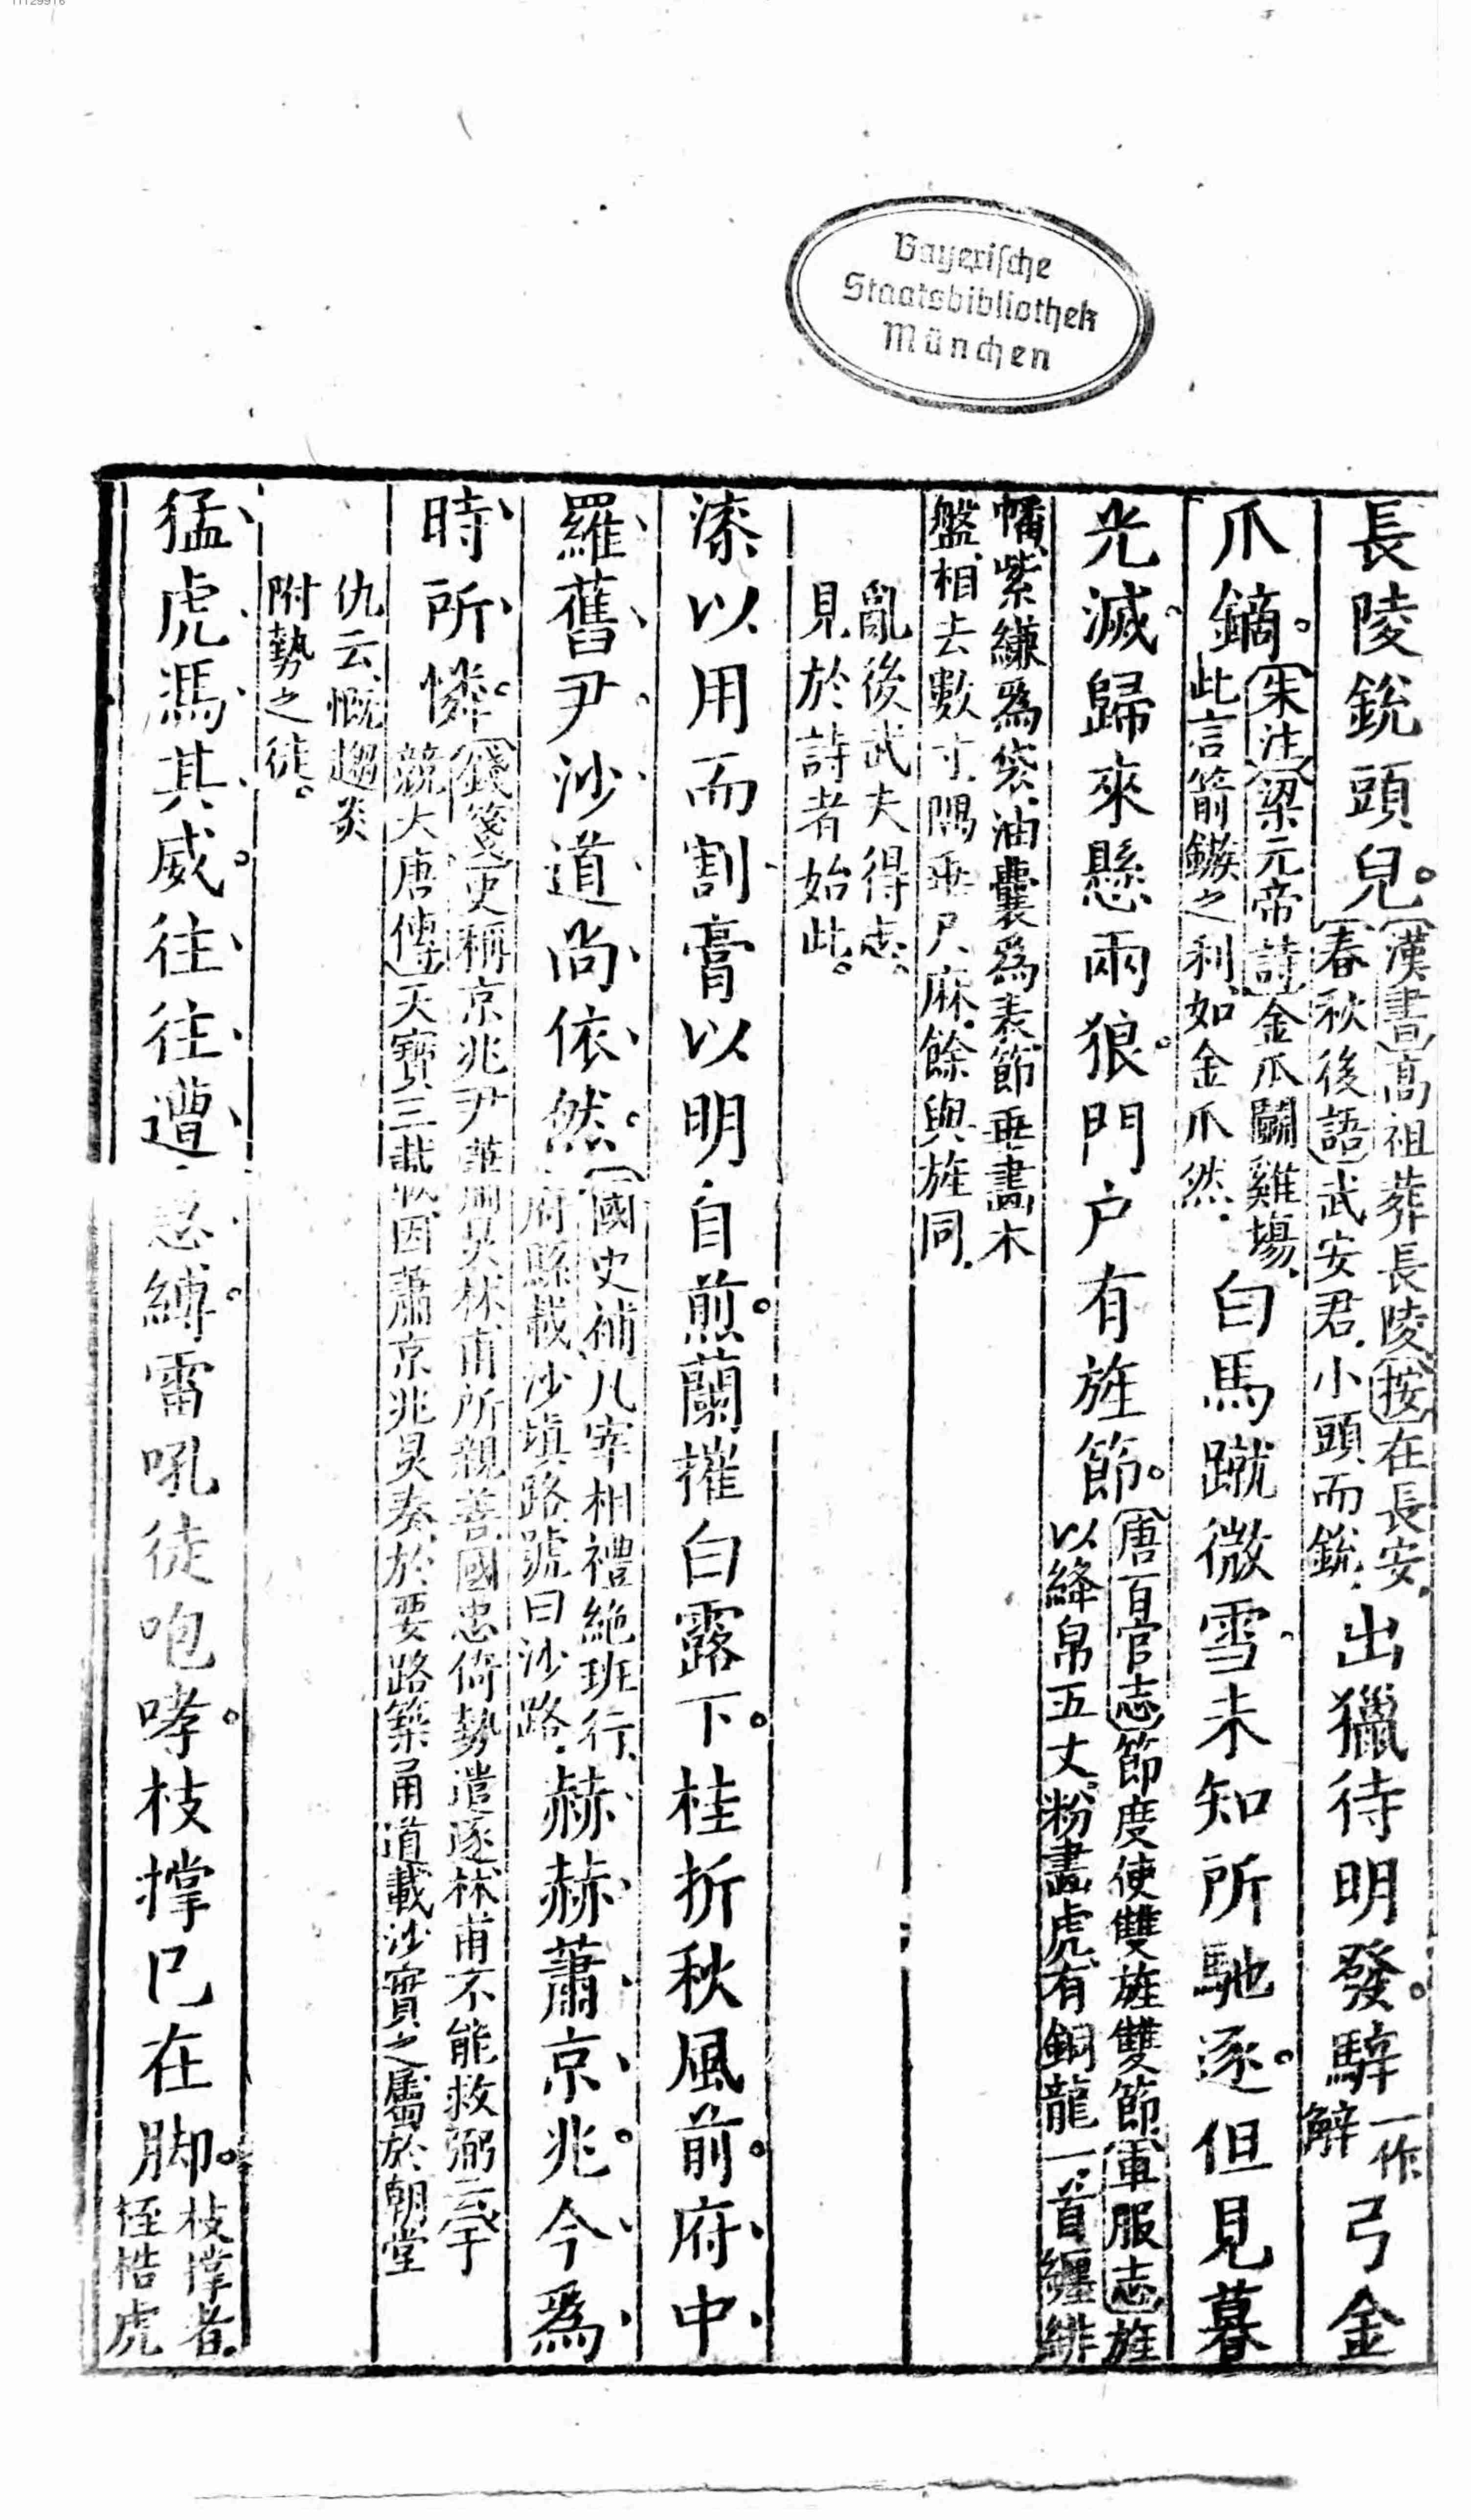 11129916
Bayerische
Staatsbibliothek
München
長陵銳頭兒。漢書高祖葬長陵按在長安。春秋後語武安君小頭而銳。出獵待明發。騂一作解弓金
爪鏑。朱注梁元帝詩金爪鬭雞場。此言箭鏃之利如金爪然。白馬蹴微雪未知所馳逐。但見暮
光滅。歸來懸兩狼。門户有旌節。唐百官志節度使雙旌雙節軍服志旌以絳帛五丈粉畫虎有銅龍一首纏緋
幡紫縑爲袋油囊爲表節垂畫木
盤相去數寸隅垂尺麻餘與旌同。
亂後武夫得志、
見於詩者始此。
漆以用而割膏以明自煎。蘭摧白露下。桂折秋風前。府中
羅舊尹沙道尚依然。國史補凡宰相禮絶班行、府縣載沙填路號曰沙路。赫赫蕭京兆。今爲
時所憐。錢箋史稱京兆尹蕭炅林甫所親善國忠倚勢遣逐林甫不能救弼云于兢大唐傳天寶三載因蕭京兆炅奏於要路築甬道載沙實之屬於朝堂
仇云慨趨炎
附勢之徒。
猛虎馮其威。往往遭急縛。雷吼徒咆哮。枝撑已在脚。枝撑者桎梏虎